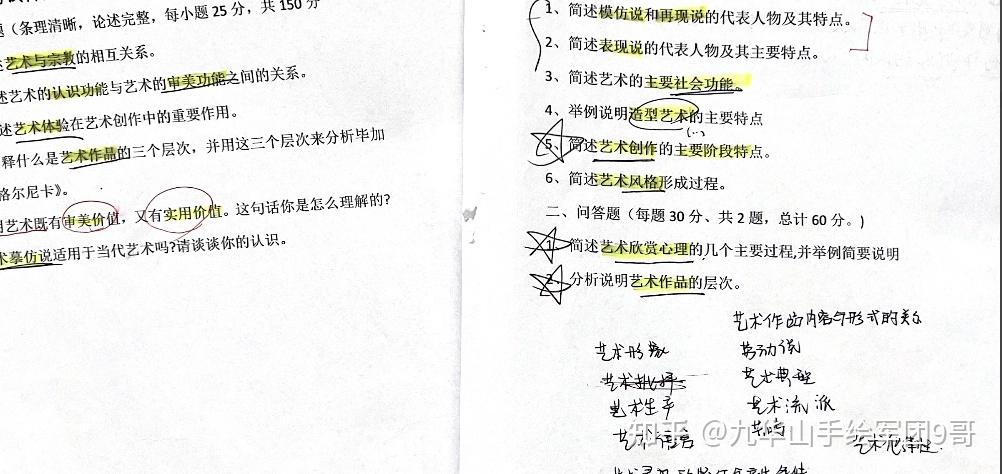 题（条理清晰，论述完整，每小题 25 分，共 150 分
述艺术与宗教的相互关系。
述艺术的认识功能与艺术的审美功能之间的关系。
述艺术体验在艺术创作中的重要作用。
释什么是艺术作品的三个层次，并用这三个层次来分析毕加
格尔尼卡》。
用艺术既有审美价值，又有实用价值。这句话你是怎么理解的?
术摹仿说适用于当代艺术吗?请谈谈你的认识。
1、简述模仿说和再现说的代表人物及其特点。
2、简述表现说的代表人物及其主要特点。
3、简述艺术的主要社会功能。
4、举例说明造型艺术的主要特点
5、简述艺术创作的主要阶段特点。
6、简述艺术风格形成过程。
二、问答题（每题 30 分、共 2 题，总计 60 分。)
1、简述艺术欣赏心理的几个主要过程,并举例简要说明
2、分析说明艺术作品的层次。
艺术作品内容与形式的关系
艺术形象 劳动说
艺术批评 艺术典型
艺术生产 艺术流派
艺术语言 共鸣
知乎 @九华山手绘军团9哥